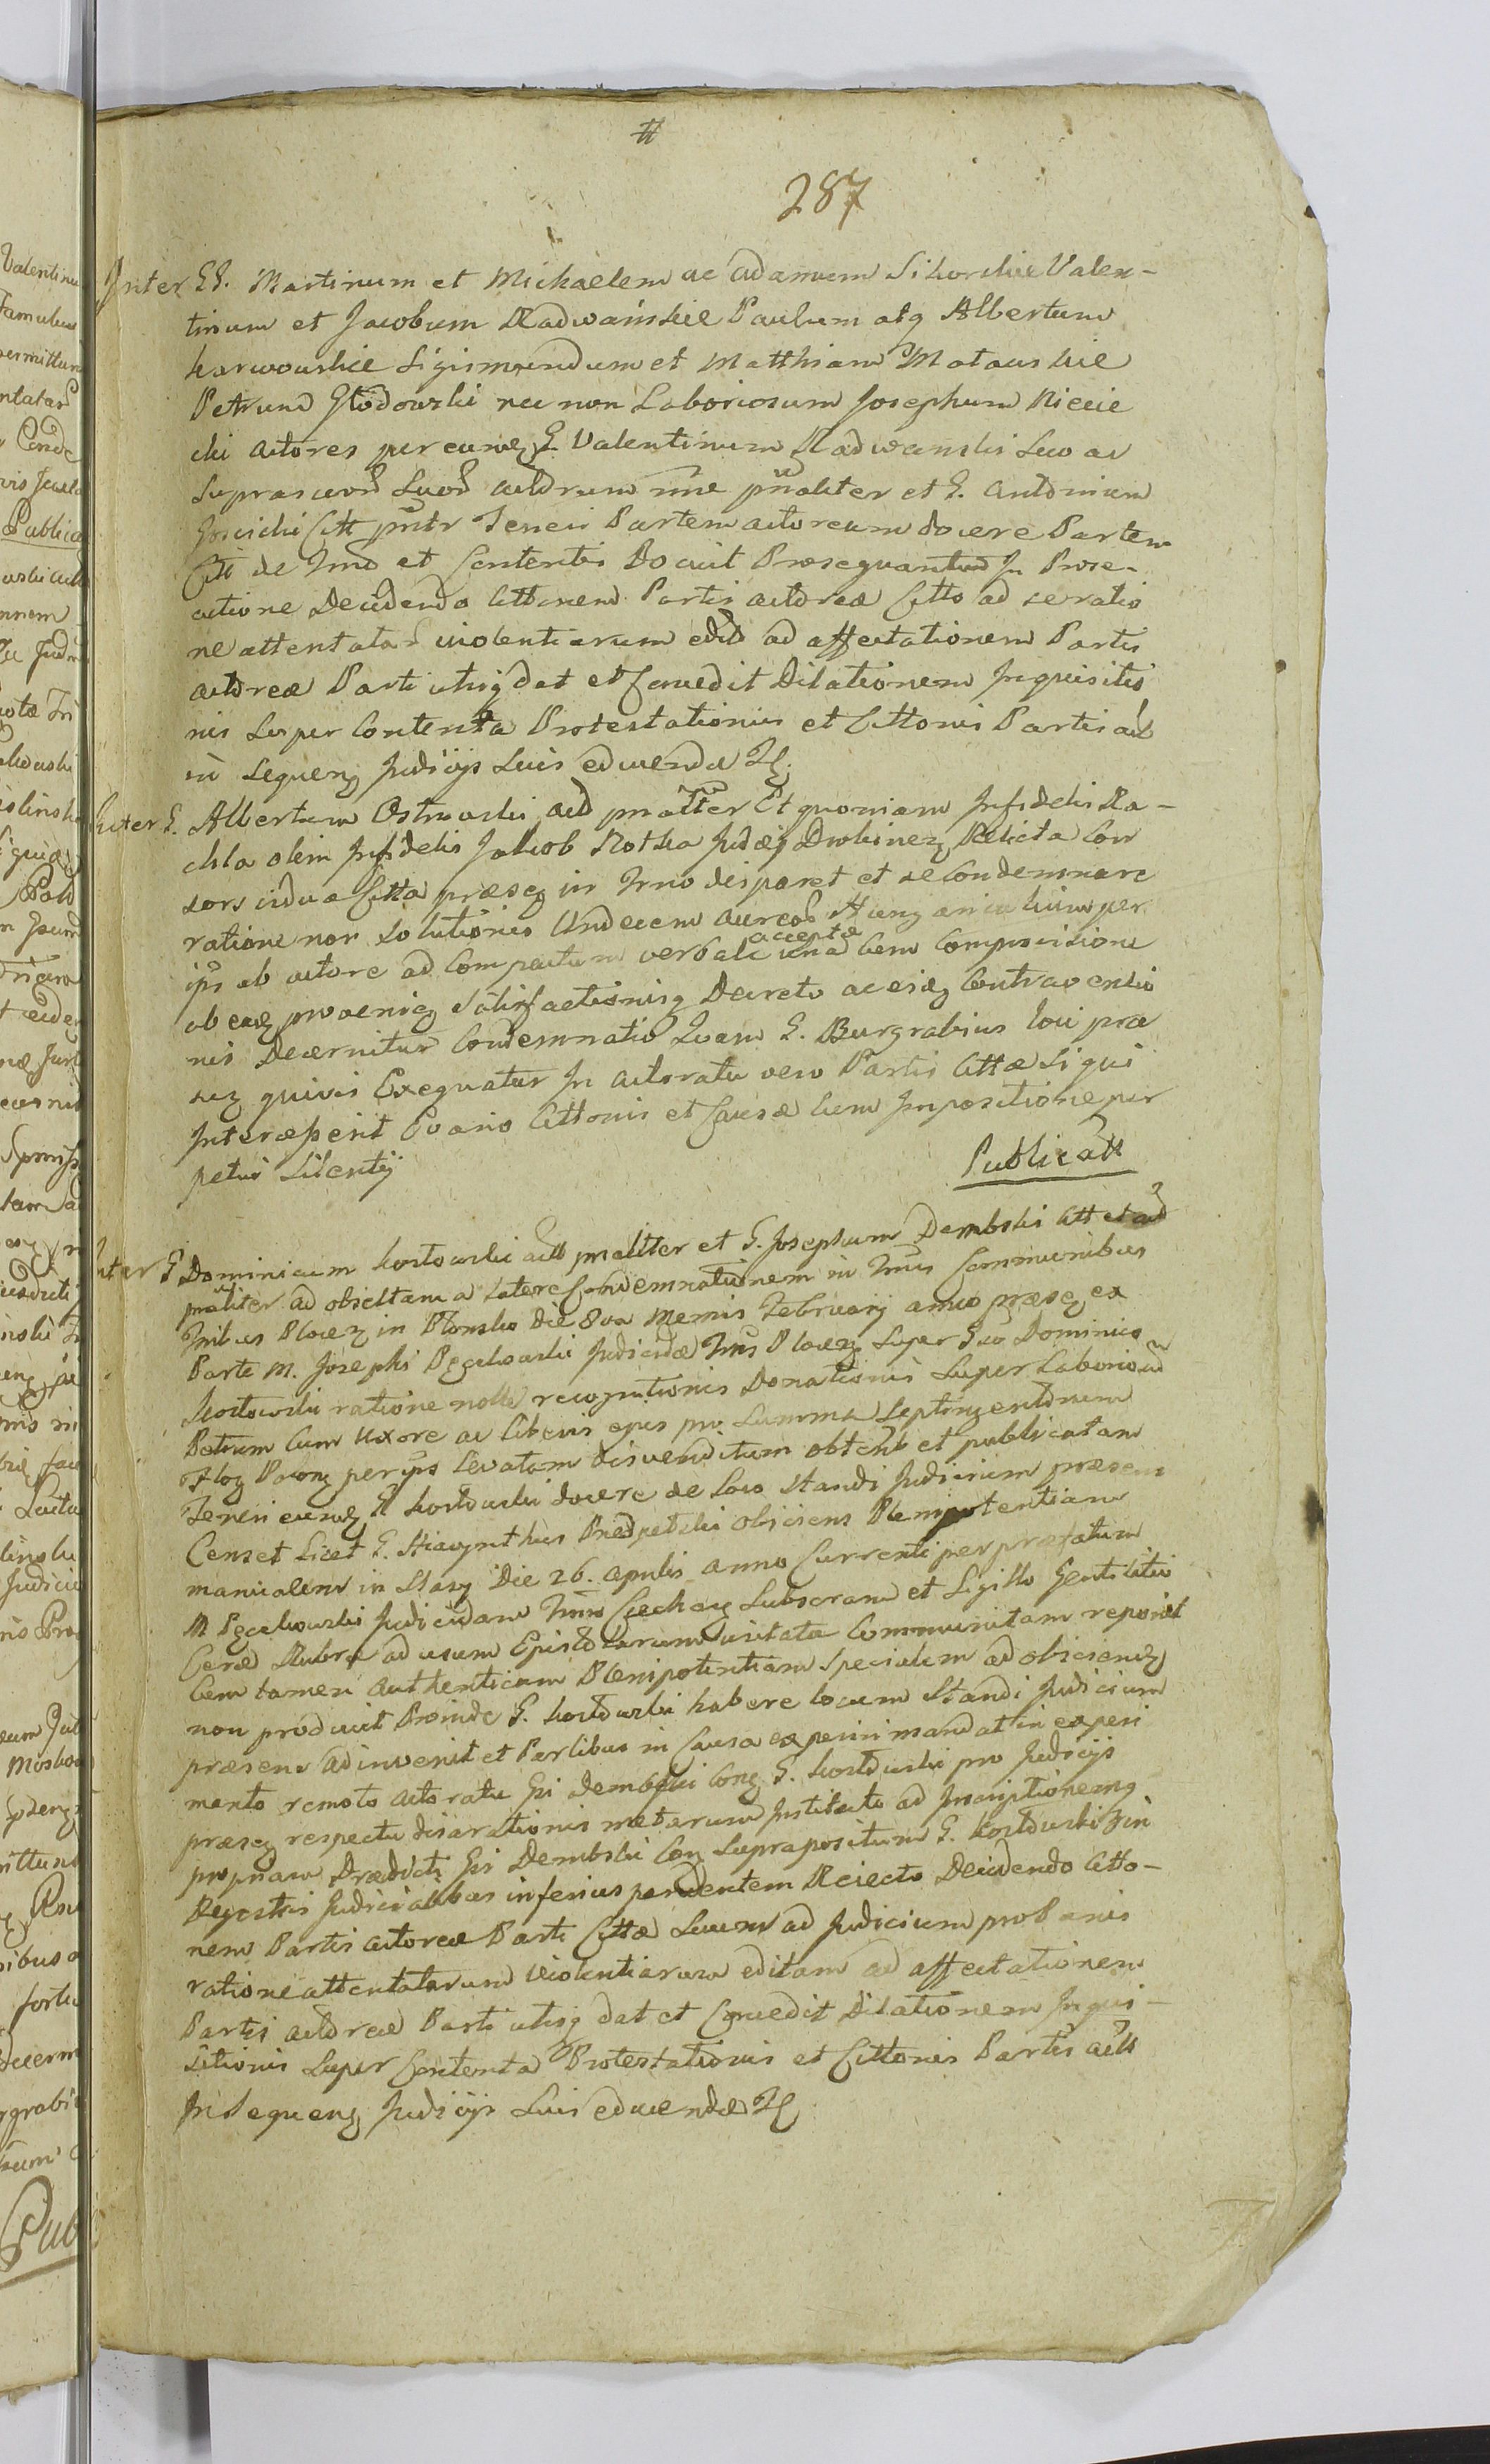 #
287
Inter GG. Martinum et Michaelem ac Adamum Sikorskie Valen-
tinum et Jacobum Radwańskie Paulum atq Albertum
karwowskie Sigismundum et Matthiam Motauskie
Petrum Głodowski nec non Laboriosum Josephum Niecie
cki Actores per eumq G Valentinum Radwanski suo ac
Suprascr Suor actorum nne pnaliter et G. Antonium
Citt pnntr Teneri Partem Actoream docere Partem
Citt de Trno et Contentis Docuit Prosequantur In Prose-
cutione Decidendo Cittonem Partis Actoreæ Citto ad se ratio
ne attentatar violentiarum edit ad affectationem Partis
actoreæ Parti utriq dat et Concedit Dilationem Inquisitio
nis super Contenta Protestationis et Cittonis Partis act
in sequenq Judicijs suis educenda
Inter G. Albertum Ostrowski act pnaliter Et quoniam Infidelis Ra-
chla olim Infidelis Jakob Rotka Judæj Drobinez Relicta Con
sors vidua Citta præsq in Trno disparet et se Condemnare
ratione non solutionis Undecem aureor Hung an cu per
ips ab actore ad Compactum verbale accepto una Cem Compositione
ob eaq provenieq Satisfactionisq Decreto ac eiq Contraventio
nis Decernitur Condemnatio Quam G. Burgrabius loci præ
seq quivis Exequatur In actoratu vero Partis Cittæ Si qui
Intercesserit Evasio Cittonis et Causæ Cum Impositione per
petui Silentij
Publicatt
Inter G Dominicum kostowski act pnaliter et G. Josephum Dembski Citt et act
pnaliter ad obiectam a Latere Condemnationem in Trnis Communibus
Trnibus Plocez in Płonsko die 8va Mensis February anno præseq ex
Parte M. Josephi Pęczkowski Judicidæ Trris Plocez Super Gso Dominico
kostowski ratione nolle recognitionis Donationis super Laboriosum
Petrum Cum Uxore ac Liberis ejus pro Summa Septingentorum
Floq Polonq per ips Levatam disvenditum obtent et publicatam
Teneri eumq G kostowski docere de Loco Standi Judicium præsens
Censet Licet G. Hiacynthus Przedpełski obiiciens Plenipotentiam
manualem in Starq Die 26. Aprilis anno Currenti per præfatum
M Pęczkowski Judicidam Trrro Ciechaq Subscram et Sigillo Gentilitio
Ceræ Rubræ ad usum Epistolarum usitatæ Communitam reponit
Cem tamen Authenticam Plenipotentiam Specialem ad obiciendq
non produxit Proinde G. kostowski habere locum Standi Judicium
præsens adinvenit et Partibus in Causa experiri mandat in experi
mento remoto actoratu Gsi Dembski Conq G. kostowski pro Judicijs
præseq respectu disarationis metarum Institutto ad Inscriptionemq
propriam Prædicti Gsi Dembski Conq Suprapositum G. Kostowski in
Regestris Judicialibus inferius pendentem Reiecto Decidendo Citto-
nem Partis actoreæ Parti Cittæ Suum ad Judicium pro eis
ratione attentatarum violentiarum editam ad affectationem
Partis actoreæ Parti utriq dat et Concedit Dilationem Inqui-
sitionis super Contenta Protestationis et Cittonis Partis act
In Sequenq Judicijs Suis educendæ